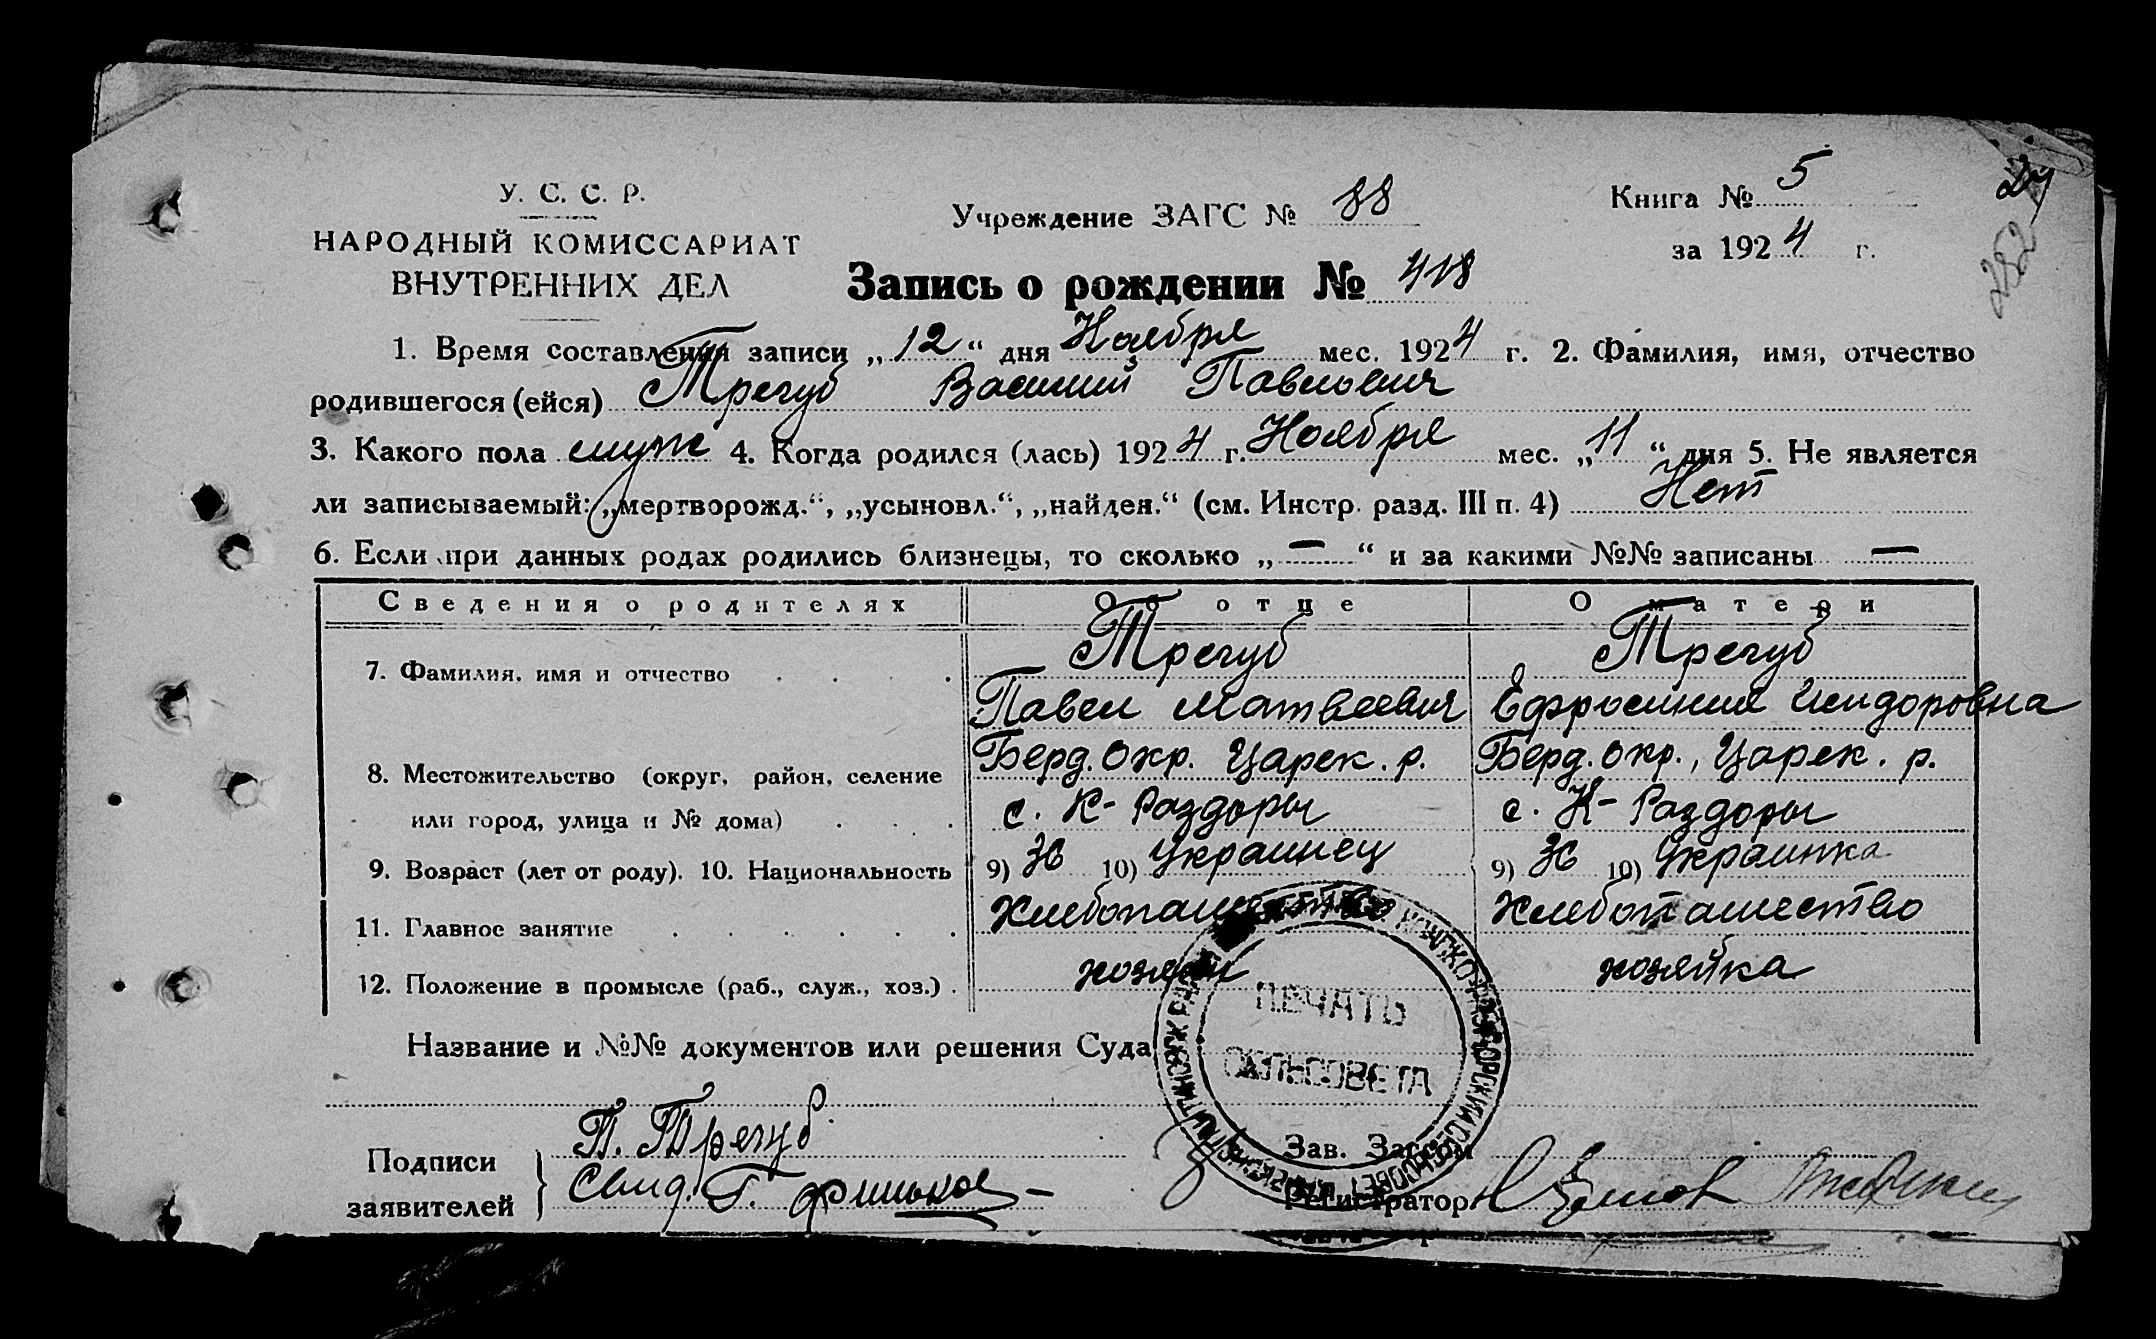 У. С. С. Р.
НАРОДНЫЙ КОМИССАРИАТ
ВНУТРЕННИХ ДЕЛ
Учреждение ЗАГС № 88
Книга № 5
за 1924 г.
Запись о рождении № 418
1. Время составления записи „12“ дня Ноября мес. 1924 г. 2. Фамилия, имя, отчество
родившегося (ейся) Трегуб Василий Павлович
3. Какого пола муж 4. Когда родился (лась) 1924 г. Ноября мес. „11“ дня 5. Не является
ли записываемый: „мертворожд.“, „усыновл.“, „найден.“ (см. Инстр. разд. III п. 4) Нет
6. Если при данных родах родились близнецы, то сколько „—“ и за какими №№ записаны —
Сведения о родителях Об отце О матери
7. Фамилия, имя и отчество Трегуб Трегуб
Павел Матвеевич Ефросиния Исидоровна
8. Местожительство (округ, район, селение Берд. Окр. Царек. р. Берд. Окр., Царек. р.
или город, улица и № дома) с. К-Раздоры с. К-Раздоры
9. Возраст (лет от роду). 10. Национальность 9) 36 10) Украинец 9) 36 10) Украинка
11. Главное занятие Хлебопашество Хлебопашество
12. Положение в промысле (раб., служ., хоз.) хозяин хозяйка
Название и №№ документов или решения Суда
ПЕЧАТЬ
СЕЛЬСОВЕТА
Подписи
заявителей
П. Трегуб
Свид. Г.
Зав. Загсом
Регистратор